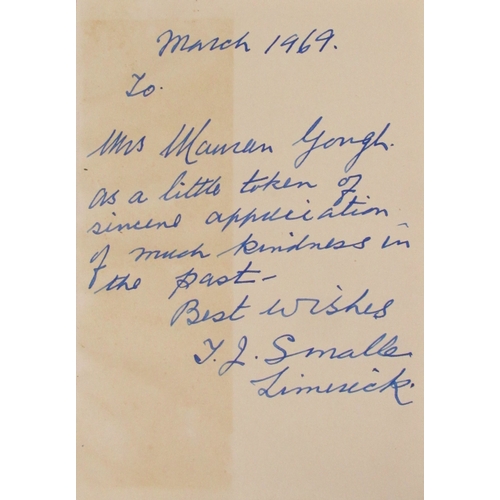 March 1969.
To.
Mrs Maureen Gough.
as a little token of
sincere appreciation
of much kindness in
the past-
Best Wishes
T. J. Smalle
Limerick.